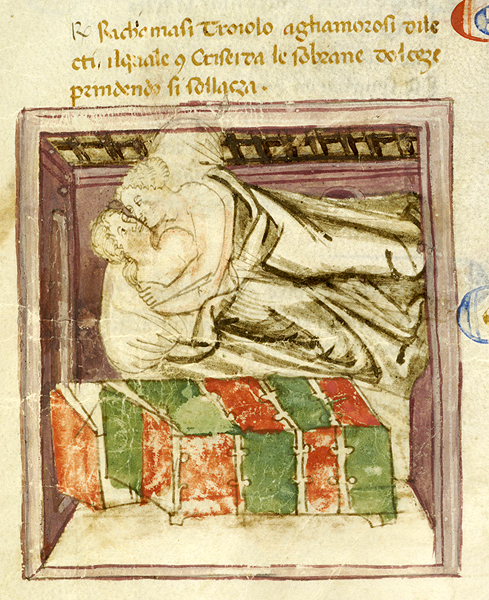 Troiolo agliamorosi dile
cti. ilquale ꝯ Criseida le sobrane dolceze
prindendo si sollaça.